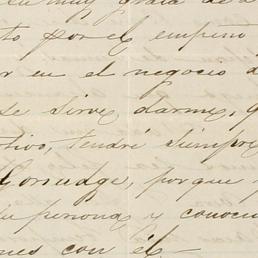 muy grata de
to por el empeño
r en el negocio d
se sirve darme, q
tivo, tendré siempre
porque
persona y conoci
nes con él